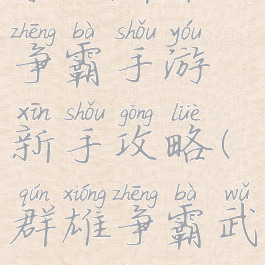 zhēng bà shǒu yóu
争霸手游
xīn shǒu gōng lüè
新手攻略(
qún xióng zhēng bà wǔ
群雄争霸武